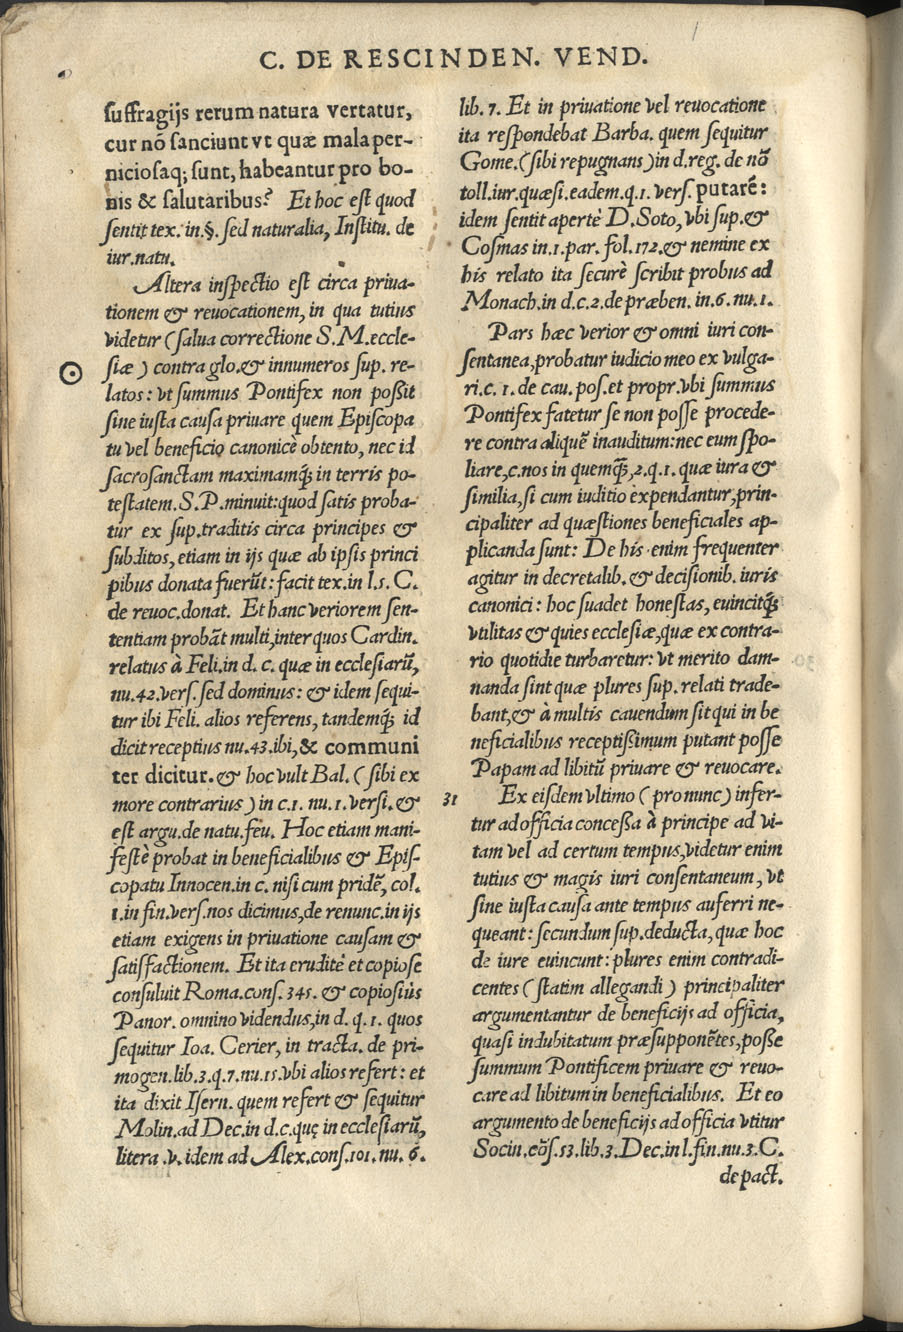 C. DE RESCINDEN. VEND.
suffragijs rerum natura vertatur,
cur nõ sanciunt vt quæ mala per-
niciosaq; sunt, habeantur pro bo-
nis & salutaribus? Et hoc est quod
sentit tex. in.§. sed naturalia, Institu. de
iur.natu.
Altera inspectio est circa priua-
tionem & reuocationem, in qua tutius
videtur (salua correctione S.M. eccle-
siæ) contra glo.& innumeros sup. re-
latos: vt summus Pontifex non possit
sine iusta causa priuare quem Episcopa
tu vel beneficio canonicè obtento, nec id
sacrosanctam maximamq́; in terris po-
testatem. S.P. minuit: quod satis proba-
tur ex sup.traditis circa principes &
subditos, etiam in ijs quæ ab ipsis princi
pibus donata fuerũt: facit tex.in l.s. C.
de reuoc.donat. Et hanc veriorem sen-
tentiam probãt multi, inter quos Cardin.
relatus à Feli.in d. c. quæ in ecclesiarũ,
nu.42.vers.sed dominus: & idem sequi-
tur ibi Feli. alios referens, tandemq́; id
dicit receptius nu.43.ibi, & communi
ter dicitur. & hoc vult Bal. (sibi ex
more contrarius) in c.1. nu.1.versi.&
est argu.de natu.feu. Hoc etiam mani-
festè probat in beneficialibus & Epis-
copatu Innocen.in c. nisi cum pridẽ, col.
1.in fin.vers.nos dicimus,de renunc.in ijs
etiam exigens in priuatione causam &
satisfactionem. Et ita eruditè et copiose
consuluit Roma.cons.345. & copiosiùs
Panor. omnino videndus,in d. q. 1. quos
sequitur Ioa. Cerier, in tracta. de pri-
mogen.lib.3.q.7.nu.15.vbi alios refert: et
ita dixit Isern. quem refert & sequitur
Molin.ad Dec.in d.c.quę in ecclesiarũ,
litera .v. idem ad Alex.cons.101. nu. 6.
lib. 7. Et in priuatione vel reuocatione
ita respondebat Barba. quem sequitur
Gome.(sibi repugnans) in d.reg. de nõ
toll.iur.quæsi.eadem.q.1.vers. putarẽ:
idem sentit apertè D. Soto, vbi sup.&
Cosmas in.1.par. fol.172.& nemine ex
his relato ita securè scribit probus ad
Monach.in d.c.2.de præben. in.6. nu.1.
Pars hæc verior & omni iuri con-
sentanea, probatur iudicio meo ex vulga-
ri.c. 1. de cau. pos.et propr.vbi summus
Pontifex fatetur se non posse procede-
re contra aliquẽ inauditum: nec eum spo-
liare,c.nos in quemq̃;,2.q.1. quæ iura &
similia, si cum iuditio expendantur,prin-
cipaliter ad quæstiones beneficiales ap-
plicanda sunt: De his enim frequenter
agitur in decretalib. & decisionib. iuris
canonici: hoc suadet honestas, euincitq́;
vtilitas & quies ecclesiæ,quæ ex contra-
rio quotidie turbaretur: vt merito dam-
nanda sint quæ plures sup. relati trade-
bant,& à multis cauendum sit qui in be
neficialibus receptissimum putant posse
Papam ad libitũ priuare & reuocare.
31 Ex eisdem vltimo (pro nunc) infer-
tur ad officia concessa à principe ad vi-
tam vel ad certum tempus,videtur enim
tutius & magis iuri consentaneum, vt
sine iusta causa ante tempus auferri ne-
queant: secundum sup.deducta, quæ hoc
de iure euincunt: plures enim contradi-
centes (statim allegandi) principaliter
argumentantur de beneficijs ad officia,
quasi indubitatum præsupponẽtes, posse
summum Pontificem priuare & reuo-
care ad libitum in beneficialibus. Et eo
argumento de beneficijs ad officia vtitur
Socin.cõs.53.lib.3.Dec.in l.fin.nu.3.C.
de pact.